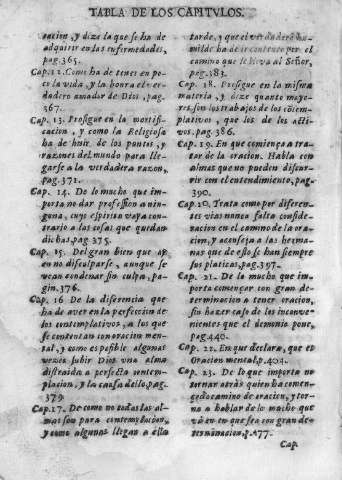 TABLA DE LOS CAPITVLOS.
cacion, y dize la que se ha de
adquirir en las enfermedades,
pag.365.
Cap. 12. Como ha de tener en po-
co la vida, y la honra el ver-
dadero amador de Dios, pag.
367.
Cap. 13. Prosigue en la mortifi-
cacion, y como la Religiosa
ha de huir de los puntos, y
razones del mundo para lle-
garse a la verdadera razon,
pag.371.
Cap. 14. De lo mucho que im-
porta no dar profession a nin-
guna, cuyo espiritu vaya con-
trario a las cosas que quedan
dichas, pag 375.
Cap. 15. Del gran bien que ay
en no disculparse, aunque se
vean condenar sin culpa, pa-
gin. 376.
Cap. 16 De la diferencia que
ha de aver en la perfeccion de
los contemplativos, a los que
se contentan con oracion men-
tal, y como es posible algunas
vezes subir Dios vna alma
distraida a perfecta contem-
placion, y la causa dello, pag.
379
Cap.17. De como no todas las al-
mas son para contemplacion,
y como algunas llegan a ella
tarde, y que el verdadero hu-
milde ha de ir contento por el
camino que le lleva al Señor,
pag.383.
Cap. 18. Prosigue en la misma
materia, y dize quanto mayo-
res son los trabajos de los cõtem-
plativos, que los de los acti-
vos. pag.386.
Cap. 19. En que comiença a tra-
tar de la oracion. Habla con
almas que no pueden discur-
rir con el entendimiento, pag.
390.
Cap.20. Trata como por diferen-
tes vias nunca falta conside-
racion en el camino de la ora-
cion, y aconseja a las herma-
nas que de esto se han siempre
sus platicas, pag.397.
Cap. 21. De lo mucho que im-
porta començar con gran de-
terminacion a tener oracion,
sin hazer caso de los inconve-
nientes que el demonio pone,
pag.440.
Cap. 22. En que declara, que es
Oracion mental, p.404.
Cap. 23. De lo que importa no
tornar atràs quien ha comen-
çado camino de oracion, y tor-
na a hablar de lo mucho que
và en en que sea con gran de-
terminacion, p.477.
Cap.